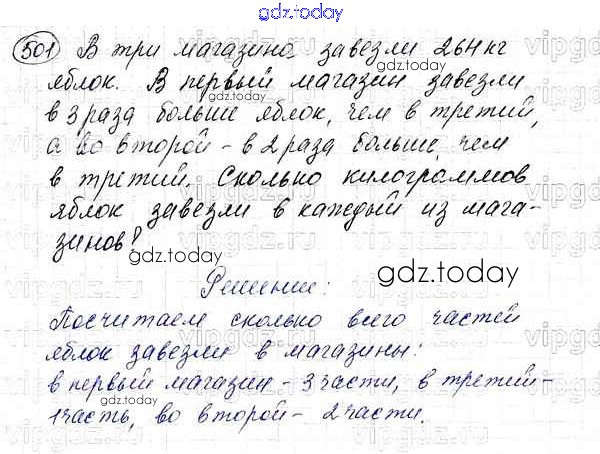 gdz.today
501 В три магазина завезли 264 кг
gdz.today
яблок. В первый магазин завезли
в 3 раза больше яблок, чем в третий,
а во второй - в 2 раза больше, чем
в третий. Сколько килограммов
яблок завезли в каждый из мага-
зинов?
gdz.today
gdz.today
Решение:
Посчитаем сколько всего частей
яблок завезли в магазины:
в первый магазин - 3 части, в третий -
1 часть, во второй - 2 части.